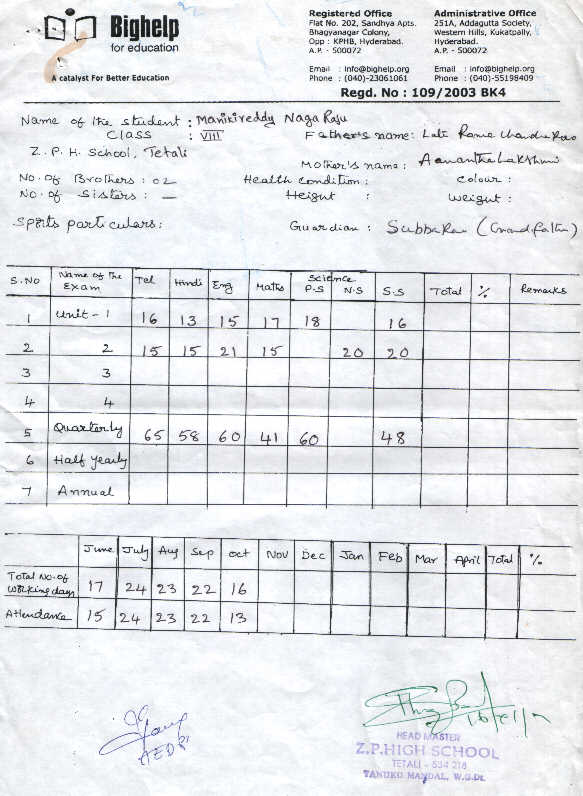 Bighelp
for education
A catalyst For Better Education
Registered Office
Flat No. 202, Sandhya Apts.
Bhagyanagar Colony,
Opp : KPHB, Hyderabad.
A.P. - 500072
Email : info@bighelp.org
Phone : (040)-23061061
Administrative Office
251A, Addagutta Society,
Western Hills, Kukatpally,
Hyderabad.
A.P. - 500072
Email : info@bighelp.org
Phone : (040)-55198409
Regd. No : 109/2003 BK4
Name of the student : Manikireddy Naga Raju
Class : VIII Father's name: Late Rama Chandra Rao
Z.P.H. School, Tetali
Mother's name : Aanantha Lakshmi
No. of Brothers : 02 Health condition : colour :
No. of Sisters : — Height : weight :
Sports particulars: Guardian : Subba Rao (Grand father)
S.No Name of the Exam Tel Hindi Eng Maths Science P.S N.S S.S Total % Remarks
1 Unit - 1 16 13 15 17 18 16
2 2 15 15 21 15 20 20
3 3
4 4
5 Quarterly 65 58 60 41 60 48
6 Half Yearly
7 Annual
June July Aug Sep Oct Nov Dec Jan Feb Mar April Total %
Total No. of working days 17 24 23 22 16
Attendance 15 24 23 22 13
HEAD MASTER
Z.P.HIGH SCHOOL
TETALI - 534 218
TANUKU MANDAL, W.G.Dt.